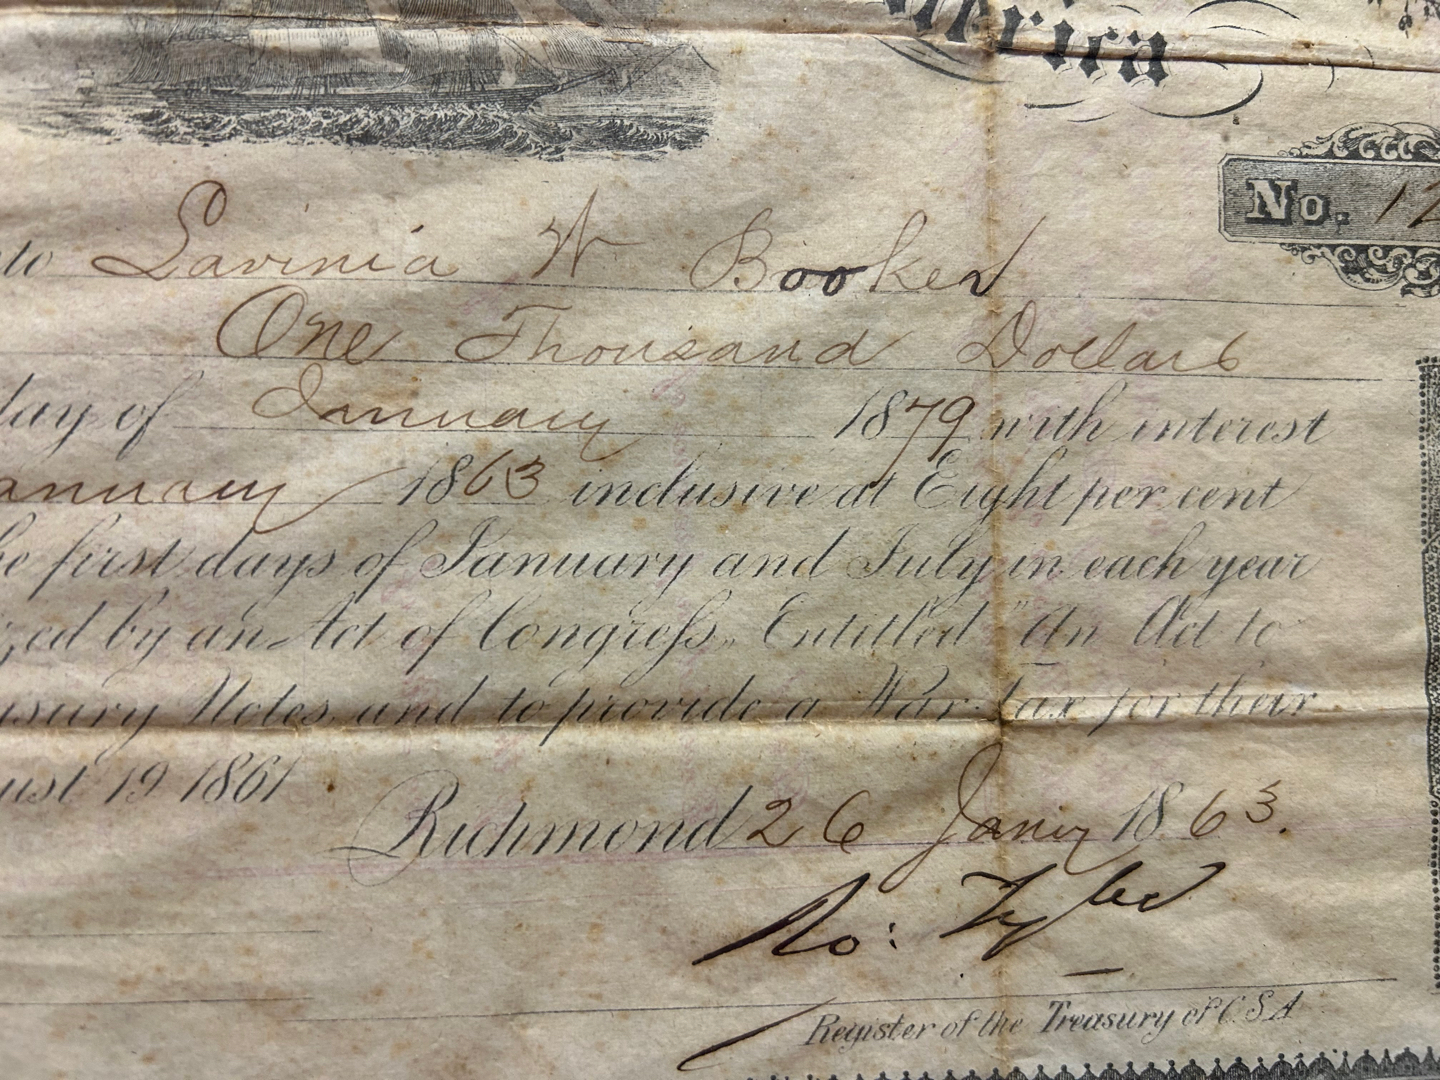 merica
No. 12
to Lavinia W Booker
One Thousand Dollars
day of January 1879 with interest
anuary 1863 inclusive at Eight per cent
he first days of January and July in each year
zed by an Act of Congress, Entitled "An Act to
asury Notes and to provide a War Tax for their
ust 19 1861
Richmond 26 Jany 1863.
Ro: Tyler
Register of the Treasury of C.S.A